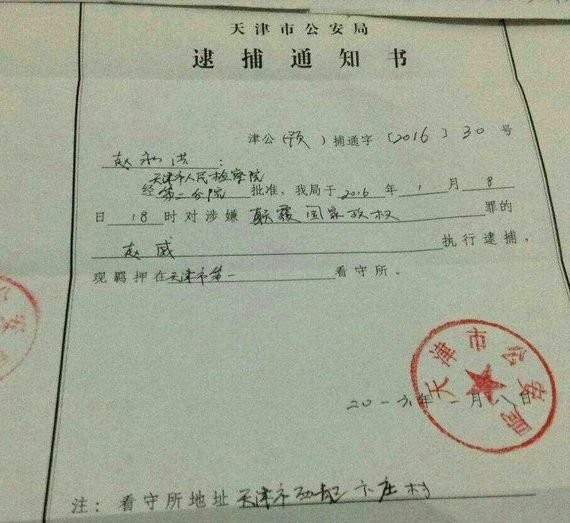 天津市公安局
逮捕通知书
津公(预)捕通字〔2016〕30号
赵和洪:
天津市人民检察院
经第二分院批准,我局于2016年1月8
日18时对涉嫌颠覆国家政权罪的
赵威执行逮捕,
现羁押在天津市第一看守所。
天津市公安局
二〇一六年一月八日
注:看守所地址天津市 卞庄村